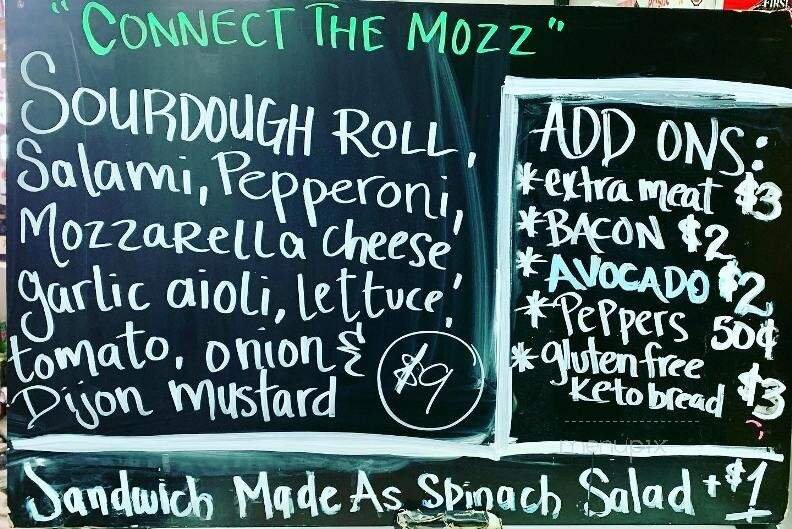 "CONNECT THE MOZZ"
SOURDOUGH ROLL,
Salami, Pepperoni,
MOZZARELLA cheese,
garlic aioli, lettuce,
tomato, onion &
Dijon mustard
$9
ADD ONS:
*extra meat $3
*BACON $2
*AVOCADO $2
*PEPPERS 50¢
*gluten free
Keto bread $3
menupix
Sandwich Made As Spinach Salad +$1